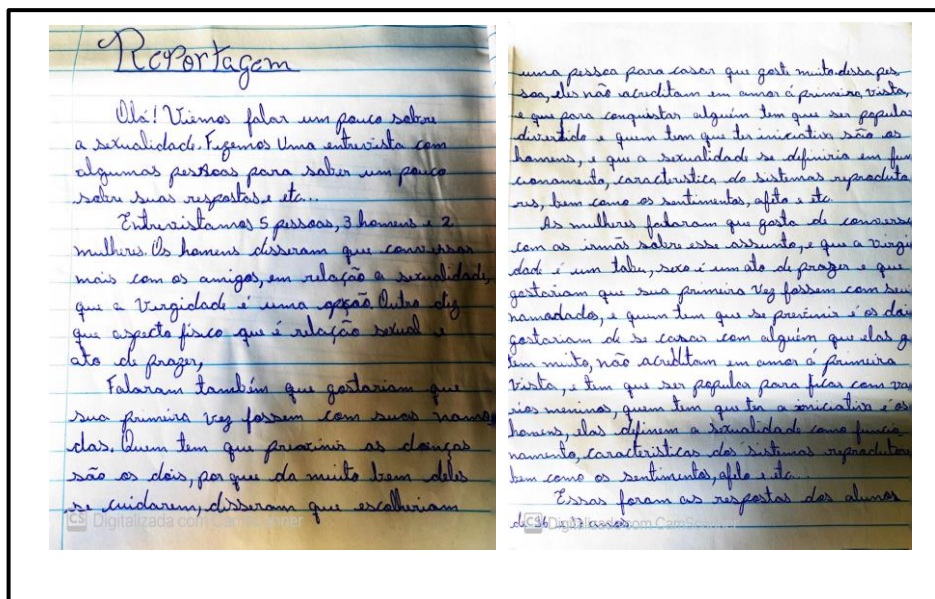 Reportagem
Olá! Viemos falar um pouco sobre
a sexualidade. Fizemos Uma entrevista com
algumas pessoas para saber um pouco
sobre suas respostas e etc...
Entrevistamos 5 pessoas, 3 homens e 2
mulheres. Os homens disseram que conversas
mais com os amigos, em relação a sexualidade,
que a Virgidade é uma opção. Outro diz
que aspecto físico que é relação sexual e
ato de prazer,
Falaram também que gostariam que
sua primeira vez fossem com suas namo
das. Quem tem que previnir as doenças
são os dois, por que da muito bem deles
se cuidarem, disseram que escolheriam
CS Digitalizada com CamScanner
uma pessoa para casar que goste muito dessa pes
soa, eles não acreditam em amor á primeira vista,
e que para conquistar alguém tem que ser popular
divertido e quem tem que ter iniciativa são os
homens, e que a sexualidade se difiniria em fun
cionamento, caracteristica do sistemas reproduto
res, bem como os sentimentos, afeto e etc.
As mulheres falaram que gosta de conversa
com as irmãs sobre esse assunto, e que a virgi
dade é um tabu, sexo é um ato de prazer e que
gostariam que sua primeira vez fossem com seus
namadados, e quem tem que se previnir é os dois
gostariam de se casar com alguém que elas g
tem muito, não acreditam em amor á primeira
vista, e tem que ser popular para ficar com va
rios meninos, quem tem que ter a iniciativa é os
homens, elas definem a sexualidade como funcio
namento, caracteristicas dos sistemas reprodutore
bem como os sentimentos, afeto e etc...
Essas foram as respostas dos alunos
de 16
CS Digitalizada com CamScanner